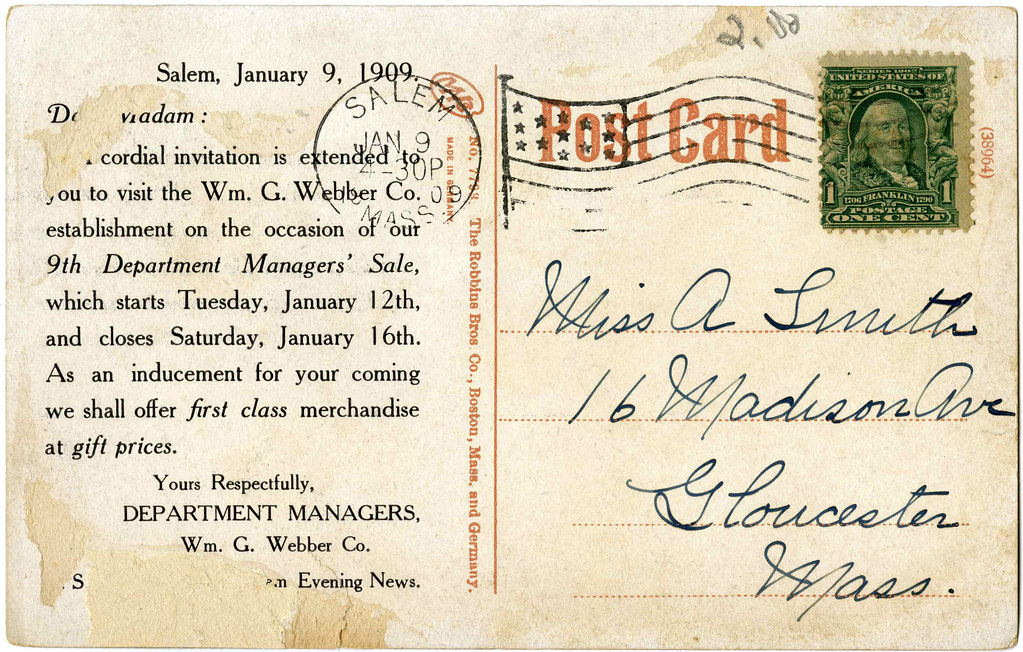 2.00
Salem, January 9, 1909.
Dear Madam :
cordial invitation is extended to
you to visit the Wm. G. Webber Co.
establishment on the occasion of our
9th Department Managers' Sale,
which starts Tuesday, January 12th,
and closes Saturday, January 16th.
As an inducement for your coming
we shall offer first class merchandise
at gift prices.
Yours Respectfully,
DEPARTMENT MANAGERS,
Wm. G. Webber Co.
S
Evening News.
SALEM
JAN. 9
4-30P
09
MASS.
MADE IN GERMANY
The Robbins Bros. Co., Boston, Mass. and Germany.
Post Card
SERIES 1902
UNITED STATES OF
AMERICA
1 1706 FRANKLIN 1790 1
POSTAGE
ONE CENT
(38964)
Miss A Smith
16 Madison Ave
Gloucester
Mass.